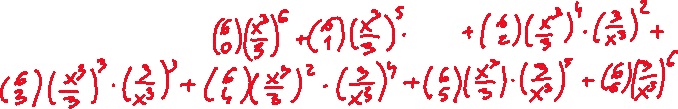 (6 0)(x²/3)⁶ + (6 1)(x²/3)⁵ · + (6 2)(x²/3)⁴ · (3/x³)² +
(6 3)(x²/3)³ · (3/x³)³ + (6 4)(x²/3)² · (3/x³)⁴ + (6 5)(x²/3) · (3/x³)⁵ + (6 6)(3/x³)⁶